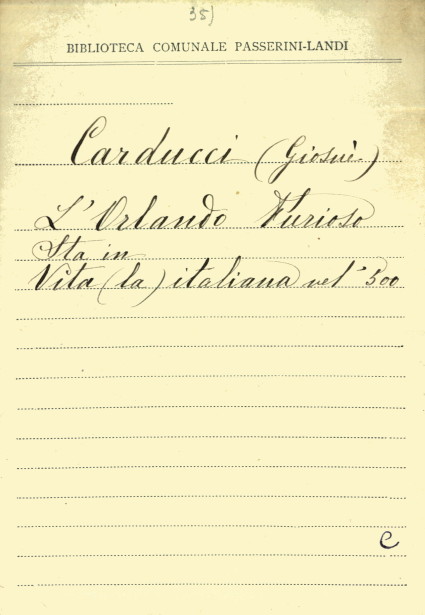 35)
BIBLIOTECA COMUNALE PASSERINI-LANDI
Carducci (Giosuè)
L'Orlando Furioso
Sta in
Vita (la) italiana nel '500
C